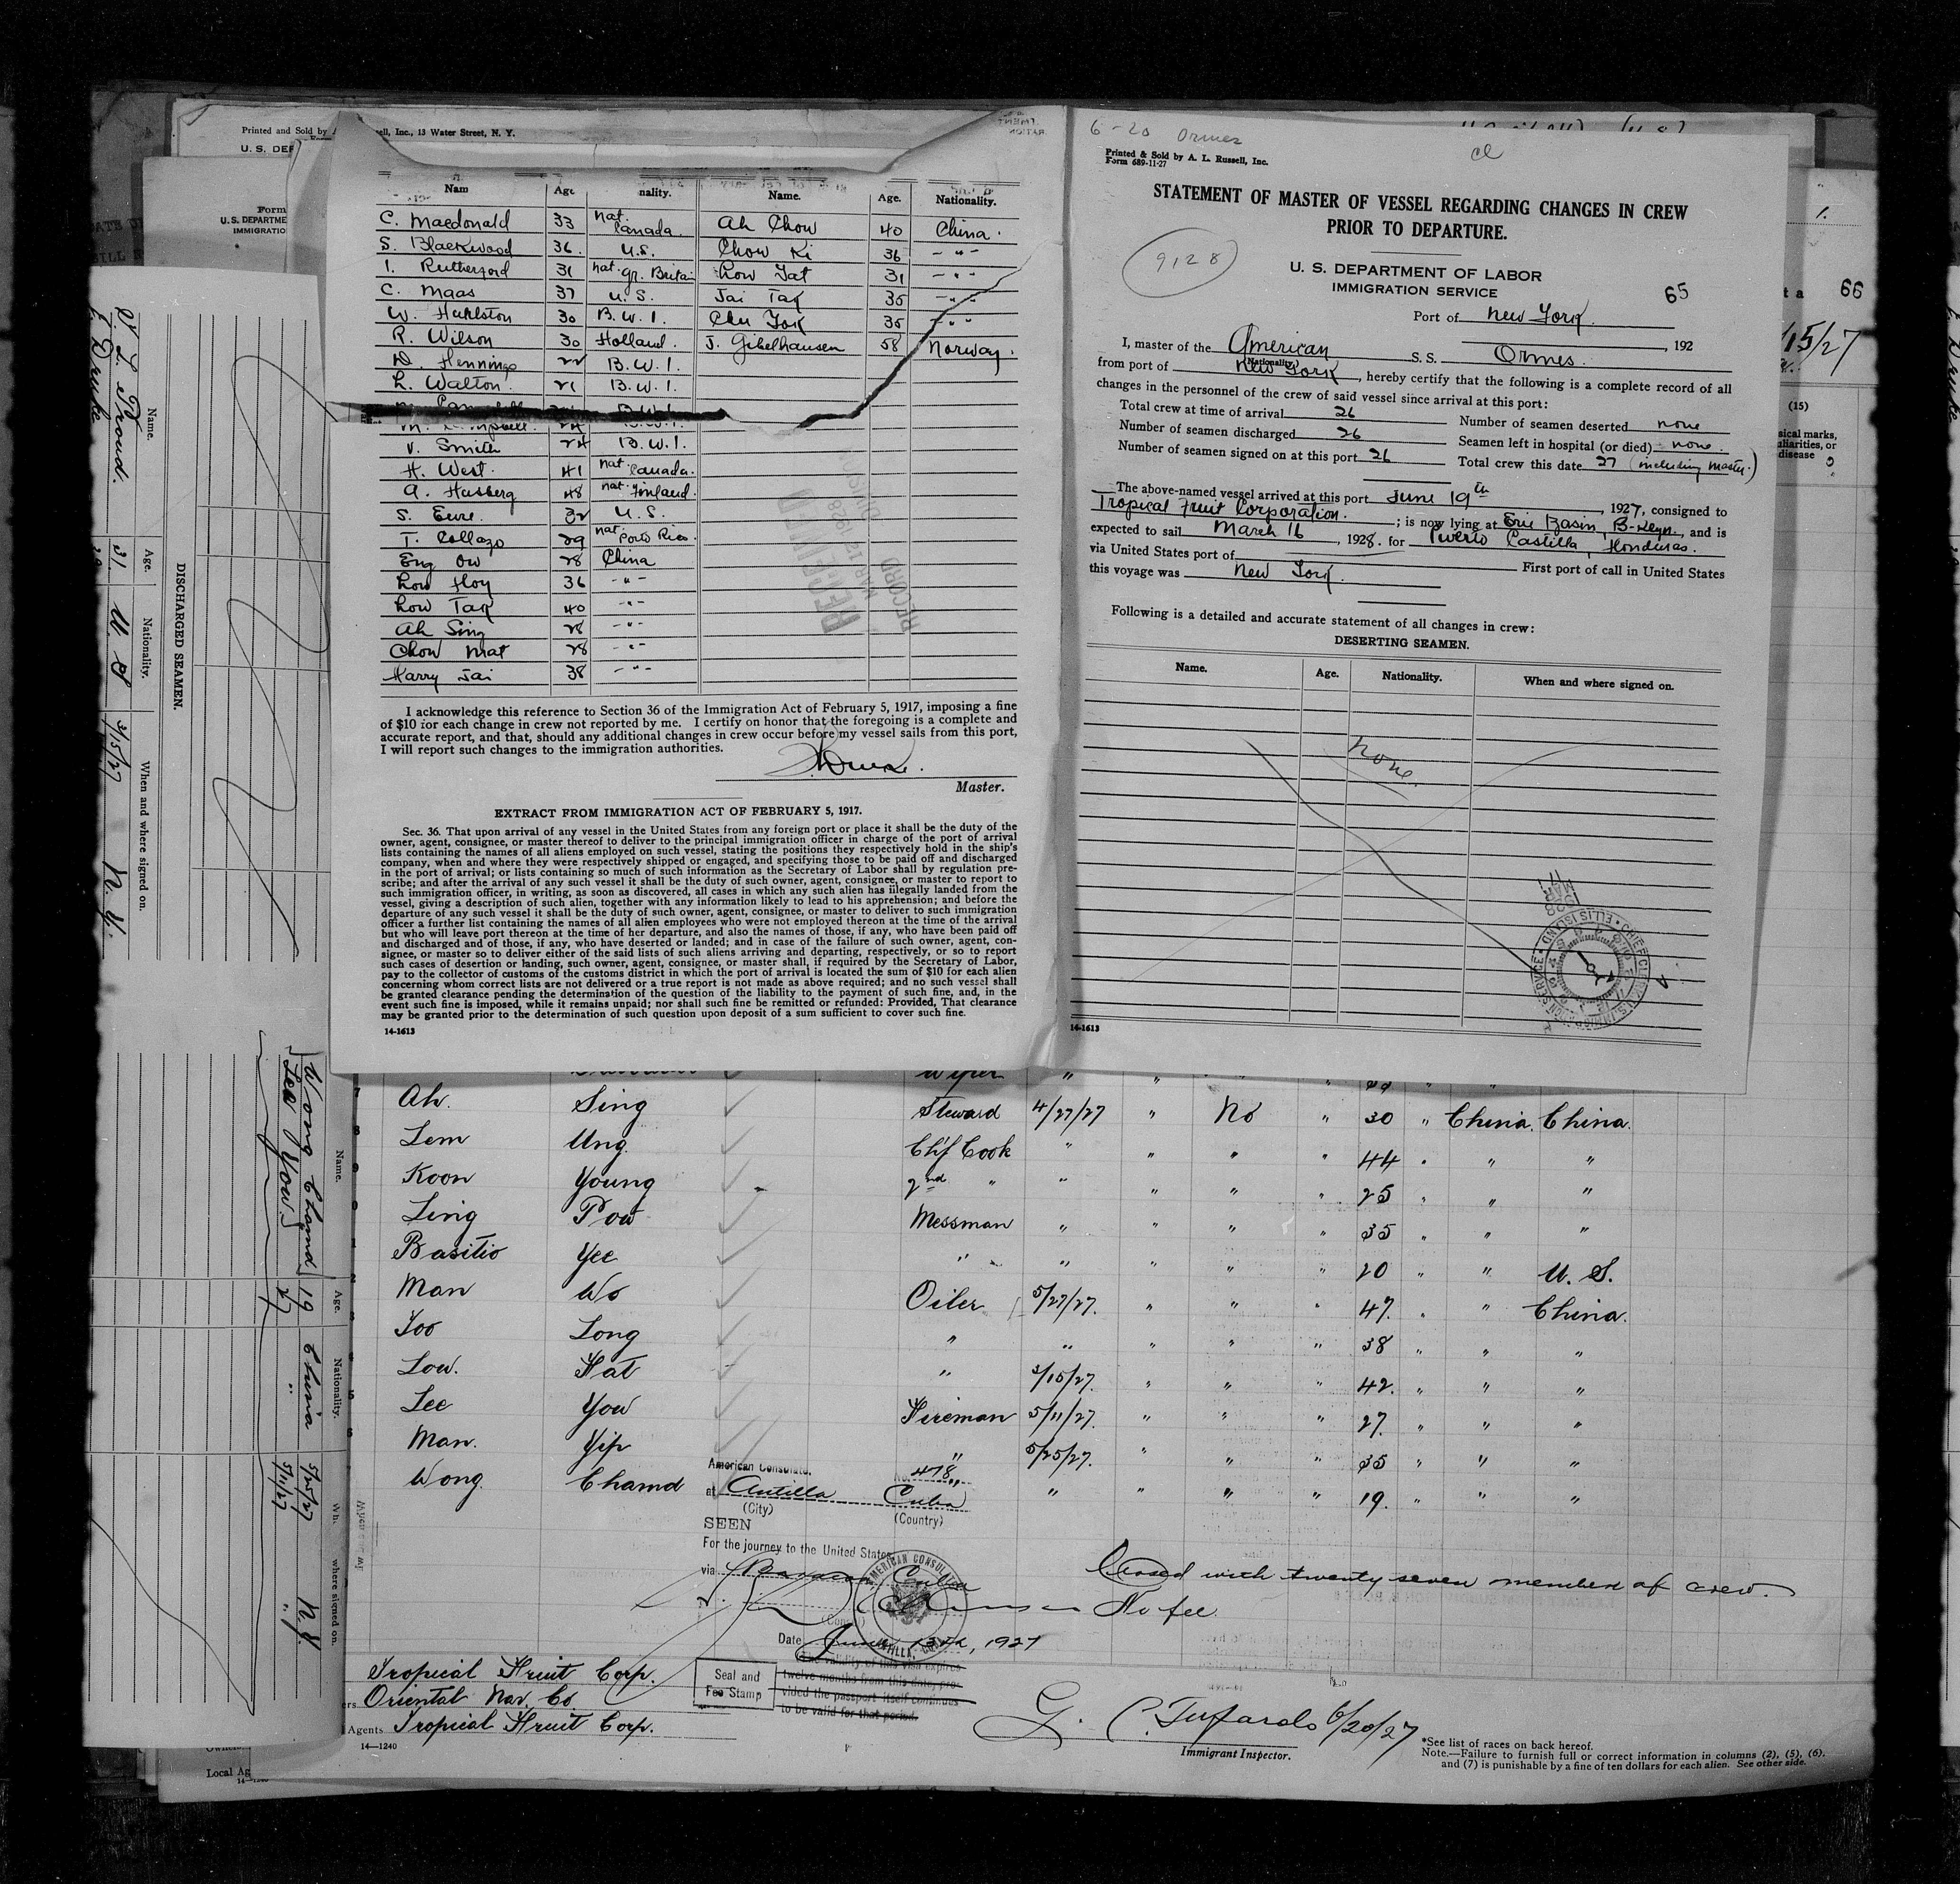 Printed and Sold by
ell, Inc., 13 Water Street, N. Y.
Age
nality.
Name.
Age.
Nationality.
C. Macdonald 33 nat. Canada. Ah Chow 40 China.
S. Blackwood 36. U.S. Chow Ki 36 - " -
I. Rutherford 31 nat. Gr. Britain Low Tat 31 - " -
C. Maas 37 U.S. Jai Tak 35 - " -
30 B.W.I. Chu York 35 - " -
R. Wilson 30 Holland. J. Gibelhausen 58 Norway.
Hennings 22 B.W.I.
L. Walton. 21 B.W.I.
V. Smith 24 B.W.I.
H. West. 41 nat. Canada.
A. Husberg 48 nat. Finland.
S. Eure. 32 U.S.
T. Collazo 29 nat. Porto Rico.
Eng Ow 28 China
Low Hoy 36 - " -
Low Tak 40 - " -
Ah Sing 28 - " -
Chow Mat 28 - " -
Harry Jai 38 - " -
RECEIVED
RECORD
I acknowledge this reference to Section 36 of the Immigration Act of February 5, 1917, imposing a fine
of $10 for each change in crew not reported by me. I certify on honor that the foregoing is a complete and
accurate report, and that, should any additional changes in crew occur before my vessel sails from this port,
I will report such changes to the immigration authorities.
Master.
EXTRACT FROM IMMIGRATION ACT OF FEBRUARY 5, 1917.
Sec. 36. That upon arrival of any vessel in the United States from any foreign port or place it shall be the duty of the
owner, agent, consignee, or master thereof to deliver to the principal immigration officer in charge of the port of arrival
lists containing the names of all aliens employed on such vessel, stating the positions they respectively hold in the ship's
company, when and where they were respectively shipped or engaged, and specifying those to be paid off and discharged
in the port of arrival; or lists containing so much of such information as the Secretary of Labor shall by regulation pre-
scribe; and after the arrival of any such vessel it shall be the duty of such owner, agent, consignee, or master to report to
such immigration officer, in writing, as soon as discovered, all cases in which any such alien has illegally landed from the
vessel, giving a description of such alien, together with any information likely to lead to his apprehension; and before the
departure of any such vessel it shall be the duty of such owner, agent, consignee, or master to deliver to such immigration
officer a further list containing the names of all alien employees who were not employed thereon at the time of the arrival
but who will leave port thereon at the time of her departure, and also the names of those, if any, who have been paid off
and discharged and of those, if any, who have deserted or landed; and in case of the failure of such owner, agent, con-
signee, or master so to deliver either of the said lists of such aliens arriving and departing, respectively, or so to report
such cases of desertion or landing, such owner, agent, consignee, or master shall, if required by the Secretary of Labor,
pay to the collector of customs of the customs district in which the port of arrival is located the sum of $10 for each alien
concerning whom correct lists are not delivered or a true report is not made as above required; and no such vessel shall
be granted clearance pending the determination of the question of the liability to the payment of such fine, and, in the
event such fine is imposed, while it remains unpaid; nor shall such fine be remitted or refunded: Provided, That clearance
may be granted prior to the determination of such question upon deposit of a sum sufficient to cover such fine.
14-1613
6-20 Ormes
Printed & Sold by A. L. Russell, Inc.
Form 689-11-27
STATEMENT OF MASTER OF VESSEL REGARDING CHANGES IN CREW
PRIOR TO DEPARTURE.
9128
U. S. DEPARTMENT OF LABOR
IMMIGRATION SERVICE
65
Port of New York
, 192
I, master of the American S.S. Ormes.
(Nationality)
from port of New York, hereby certify that the following is a complete record of all
changes in the personnel of the crew of said vessel since arrival at this port:
Total crew at time of arrival 26 Number of seamen deserted none
Number of seamen discharged 26 Seamen left in hospital (or died) none.
Number of seamen signed on at this port 26 Total crew this date 27 (including master.)
The above-named vessel arrived at this port June 19th, 1927, consigned to
Tropical Fruit Corporation.; is now lying at Erie Basin, B-klyn., and is
expected to sail March 16, 1928. for Puerto Castilla, Honduras.
via United States port of First port of call in United States
this voyage was New York.
Following is a detailed and accurate statement of all changes in crew:
DESERTING SEAMEN.
Name. Age. Nationality. When and where signed on.
none.
14-1613
66
15/27
(15)
Form
U. S. DEPARTME
IMMIGRATIO
DISCHARGED SEAMEN.
Name. Age. Nationality. When and where signed on.
31 U S 3/15/27 N.Y.
Name. Age. Nationality. where signed on.
Wong Chamd 19 China 5/25/27 N.Y.
Lee You 27 " 5/11/27 "
Ah. Sing Steward 4/27/27 " No " 30 " China. China.
Lem Ung Chf Cook " " " " 44 " " "
Koon Young 2nd " " " " " 25 " " "
Ling Pow Messman " " " " 35 " " "
Basitio Yee " " " " " 20 " " U. S.
Man Wo Oiler 5/27/27. " " " 47. " " China.
Foo Long " " " " " 38 " " "
Low. Fat " 3/15/27. " " " 42. " " "
Lee You Fireman 5/11/27. " " " 27. " " "
Man. Yip " 5/25/27. " " " 35 " " "
Wong. Chamd " " " " " 19. " " "
American Consulate, No. 478
at Antilla Cuba
(City) (Country)
SEEN
For the journey to the United States
via
AMERICAN CONSULATE
Closed with twenty seven members of crew.
No fee.
Date June 13th, 1927
Seal and
Fee Stamp
The validity of this visa expires
twelve months from this date, pro-
vided the passport itself continues
to be valid for that period.
Tropical Fruit Corp.
Oriental Nav. Co.
Agents Tropical Fruit Corp.
14—1240
6/20/27
Immigrant Inspector.
*See list of races on back hereof.
Note.—Failure to furnish full or correct information in columns (2), (5), (6),
and (7) is punishable by a fine of ten dollars for each alien. See other side.
Local Ag